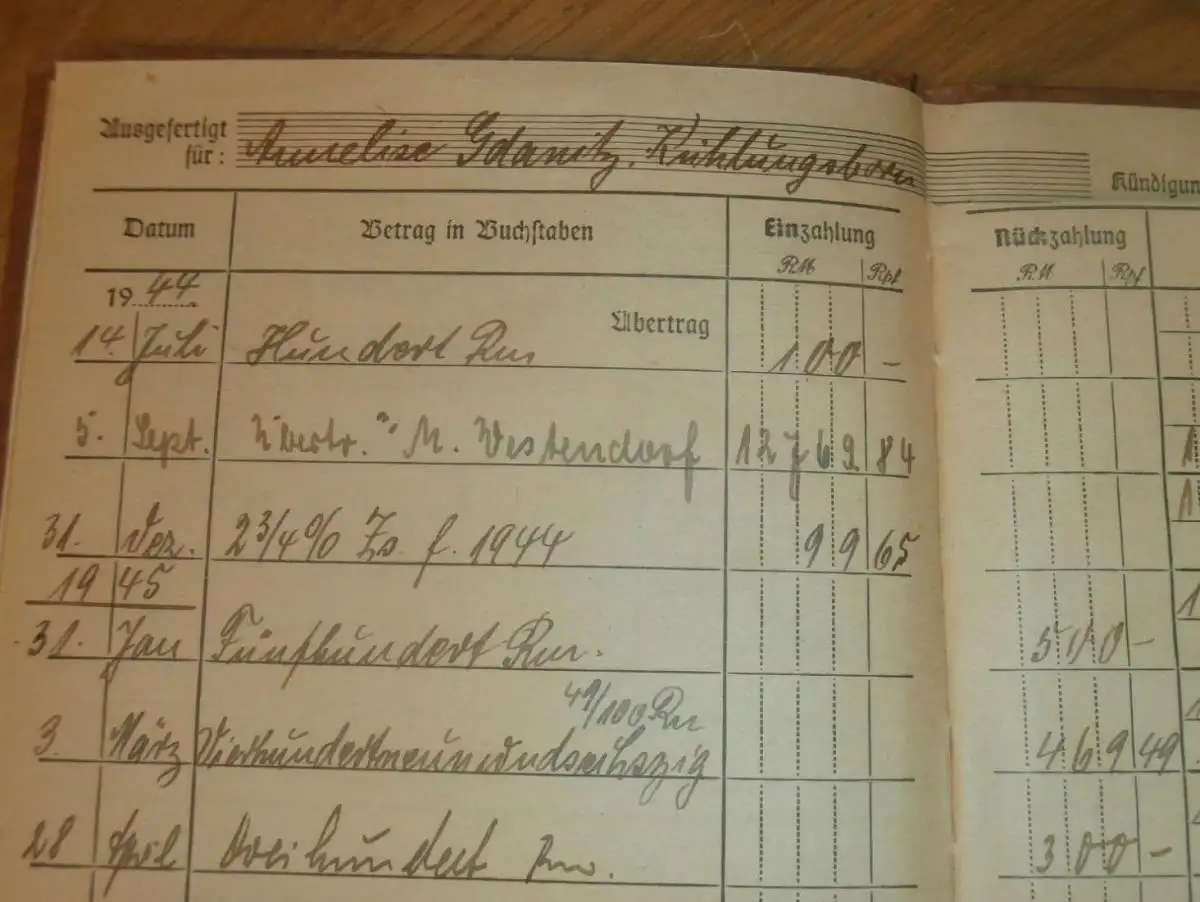 Ausgefertigt für: Annelise Gdanitz, Kühlungsborn
Kündigun
Datum Betrag in Buchstaben Einzahlung Rückzahlung
RM Rpf RM Rpf
1944
Übertrag
14. Juli Hundert Rm 100 –
5. Sept. Übertr. " M. Westendorf 12769 84
31. Dez. 2 3/4 % Zs. f. 1944 99 65
1945
31. Jan Fünfhundert Rm. 500 –
49/100 Rm
3. März Vierhundertneunundsechszig 469 49
28 April Dreihundert Rm. 300 –